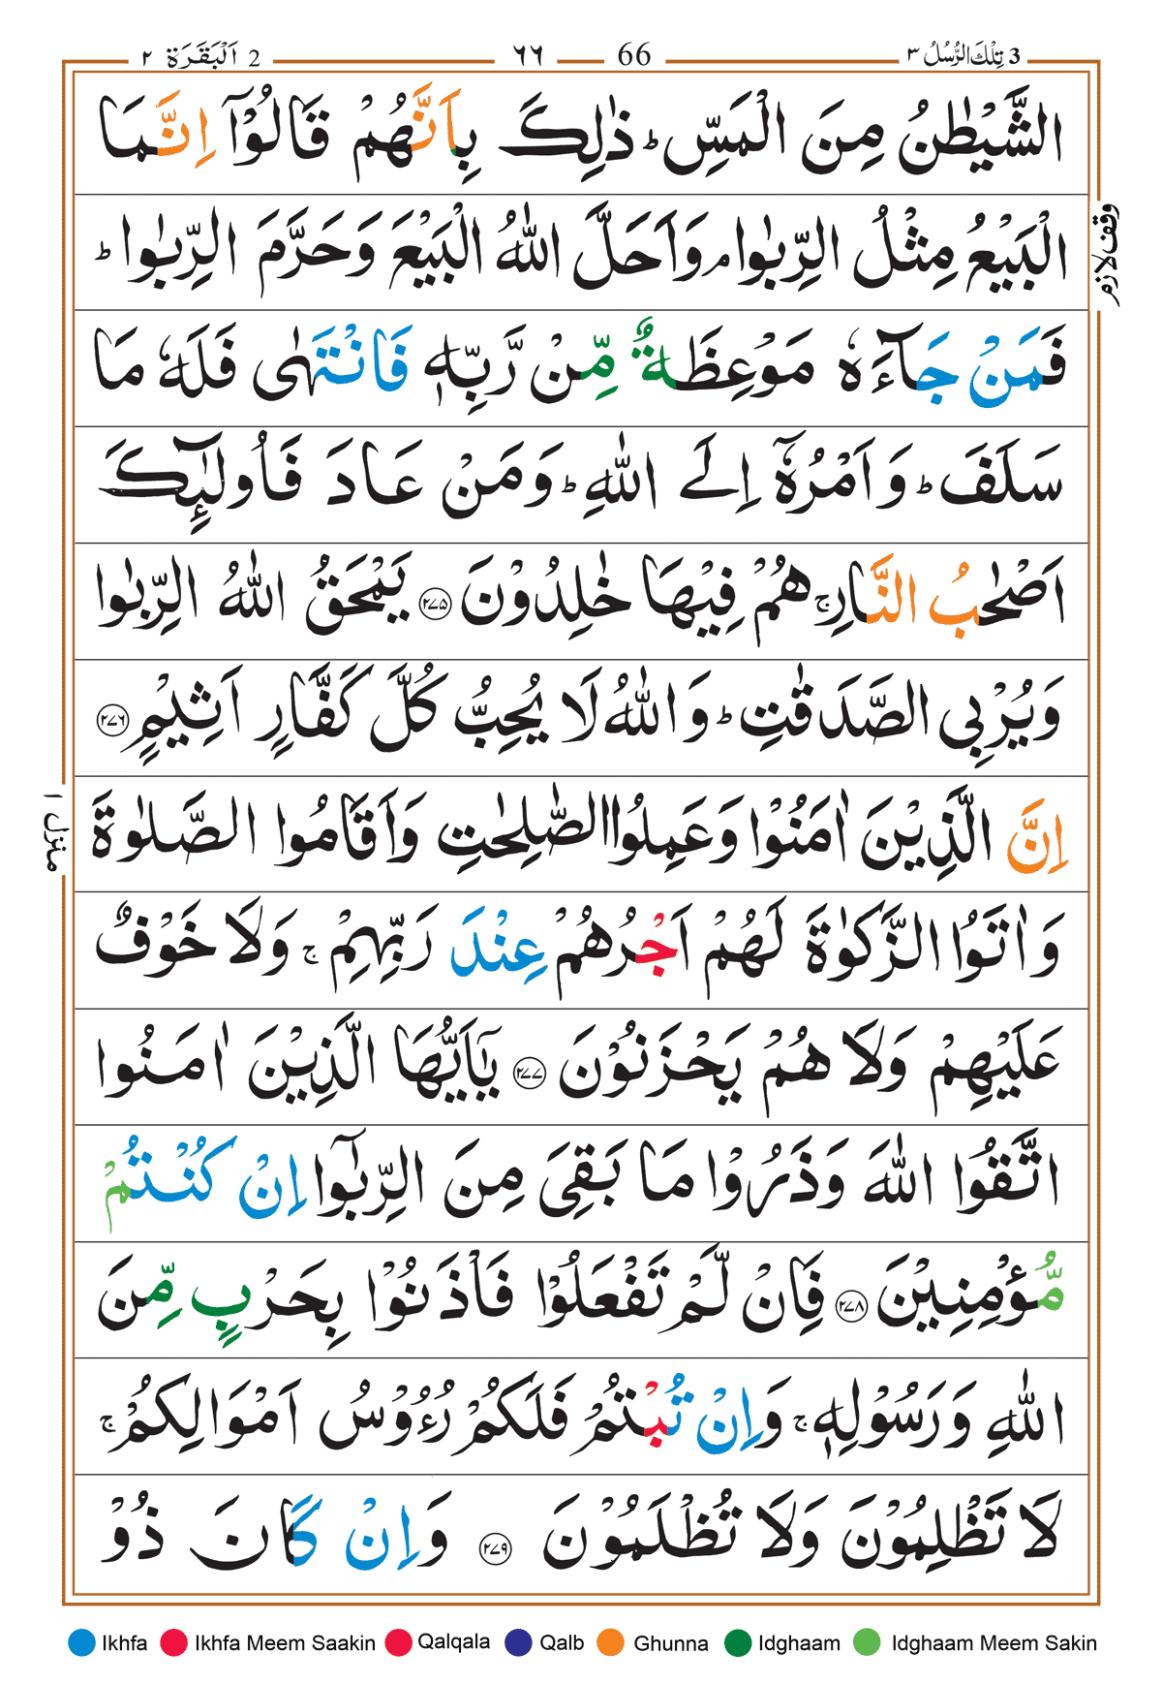 3 تِلْكَ الرُّسُلُ ٣
66
٦٦
2 اَلْبَقَرَة ٢
الشَّيْطٰنُ مِنَ الْمَسِّ ؕ ذٰلِكَ بِاَنَّهُمْ قَالُوْۤا اِنَّمَا
الْبَيْعُ مِثْلُ الرِّبٰوا ۘ وَاَحَلَّ اللّٰهُ الْبَيْعَ وَحَرَّمَ الرِّبٰوا ؕ
وقف لازم
فَمَنْ جَآءَهٗ مَوْعِظَةٌ مِّنْ رَّبِّهٖ فَانْتَهٰى فَلَهٗ مَا
سَلَفَ ؕ وَاَمْرُهٗۤ اِلَى اللّٰهِ ؕ وَمَنْ عَادَ فَاُولٰٓئِكَ
اَصْحٰبُ النَّارِ ۚ هُمْ فِيْهَا خٰلِدُوْنَ ﴿۲۷۵﴾ يَمْحَقُ اللّٰهُ الرِّبٰوا
وَيُرْبِى الصَّدَقٰتِ ؕ وَاللّٰهُ لَا يُحِبُّ كُلَّ كَفَّارٍ اَثِيْمٍ ﴿۲۷۶﴾
اِنَّ الَّذِيْنَ اٰمَنُوْا وَعَمِلُوا الصّٰلِحٰتِ وَاَقَامُوا الصَّلٰوةَ
منزل ١
وَاٰتَوُا الزَّكٰوةَ لَهُمْ اَجْرُهُمْ عِنْدَ رَبِّهِمْ ۚ وَلَا خَوْفٌ
عَلَيْهِمْ وَلَا هُمْ يَحْزَنُوْنَ ﴿۲۷۷﴾ يٰۤاَيُّهَا الَّذِيْنَ اٰمَنُوا
اتَّقُوا اللّٰهَ وَذَرُوْا مَا بَقِىَ مِنَ الرِّبٰٓوا اِنْ كُنْتُمْ
مُّؤْمِنِيْنَ ﴿۲۷۸﴾ فَاِنْ لَّمْ تَفْعَلُوْا فَاْذَنُوْا بِحَرْبٍ مِّنَ
اللّٰهِ وَرَسُوْلِهٖ ۚ وَاِنْ تُبْتُمْ فَلَكُمْ رُءُوْسُ اَمْوَالِكُمْ ۚ
لَا تَظْلِمُوْنَ وَلَا تُظْلَمُوْنَ ﴿۲۷۹﴾ وَاِنْ كَانَ ذُوْ
Ikhfa Ikhfa Meem Saakin Qalqala Qalb Ghunna Idghaam Idghaam Meem Sakin